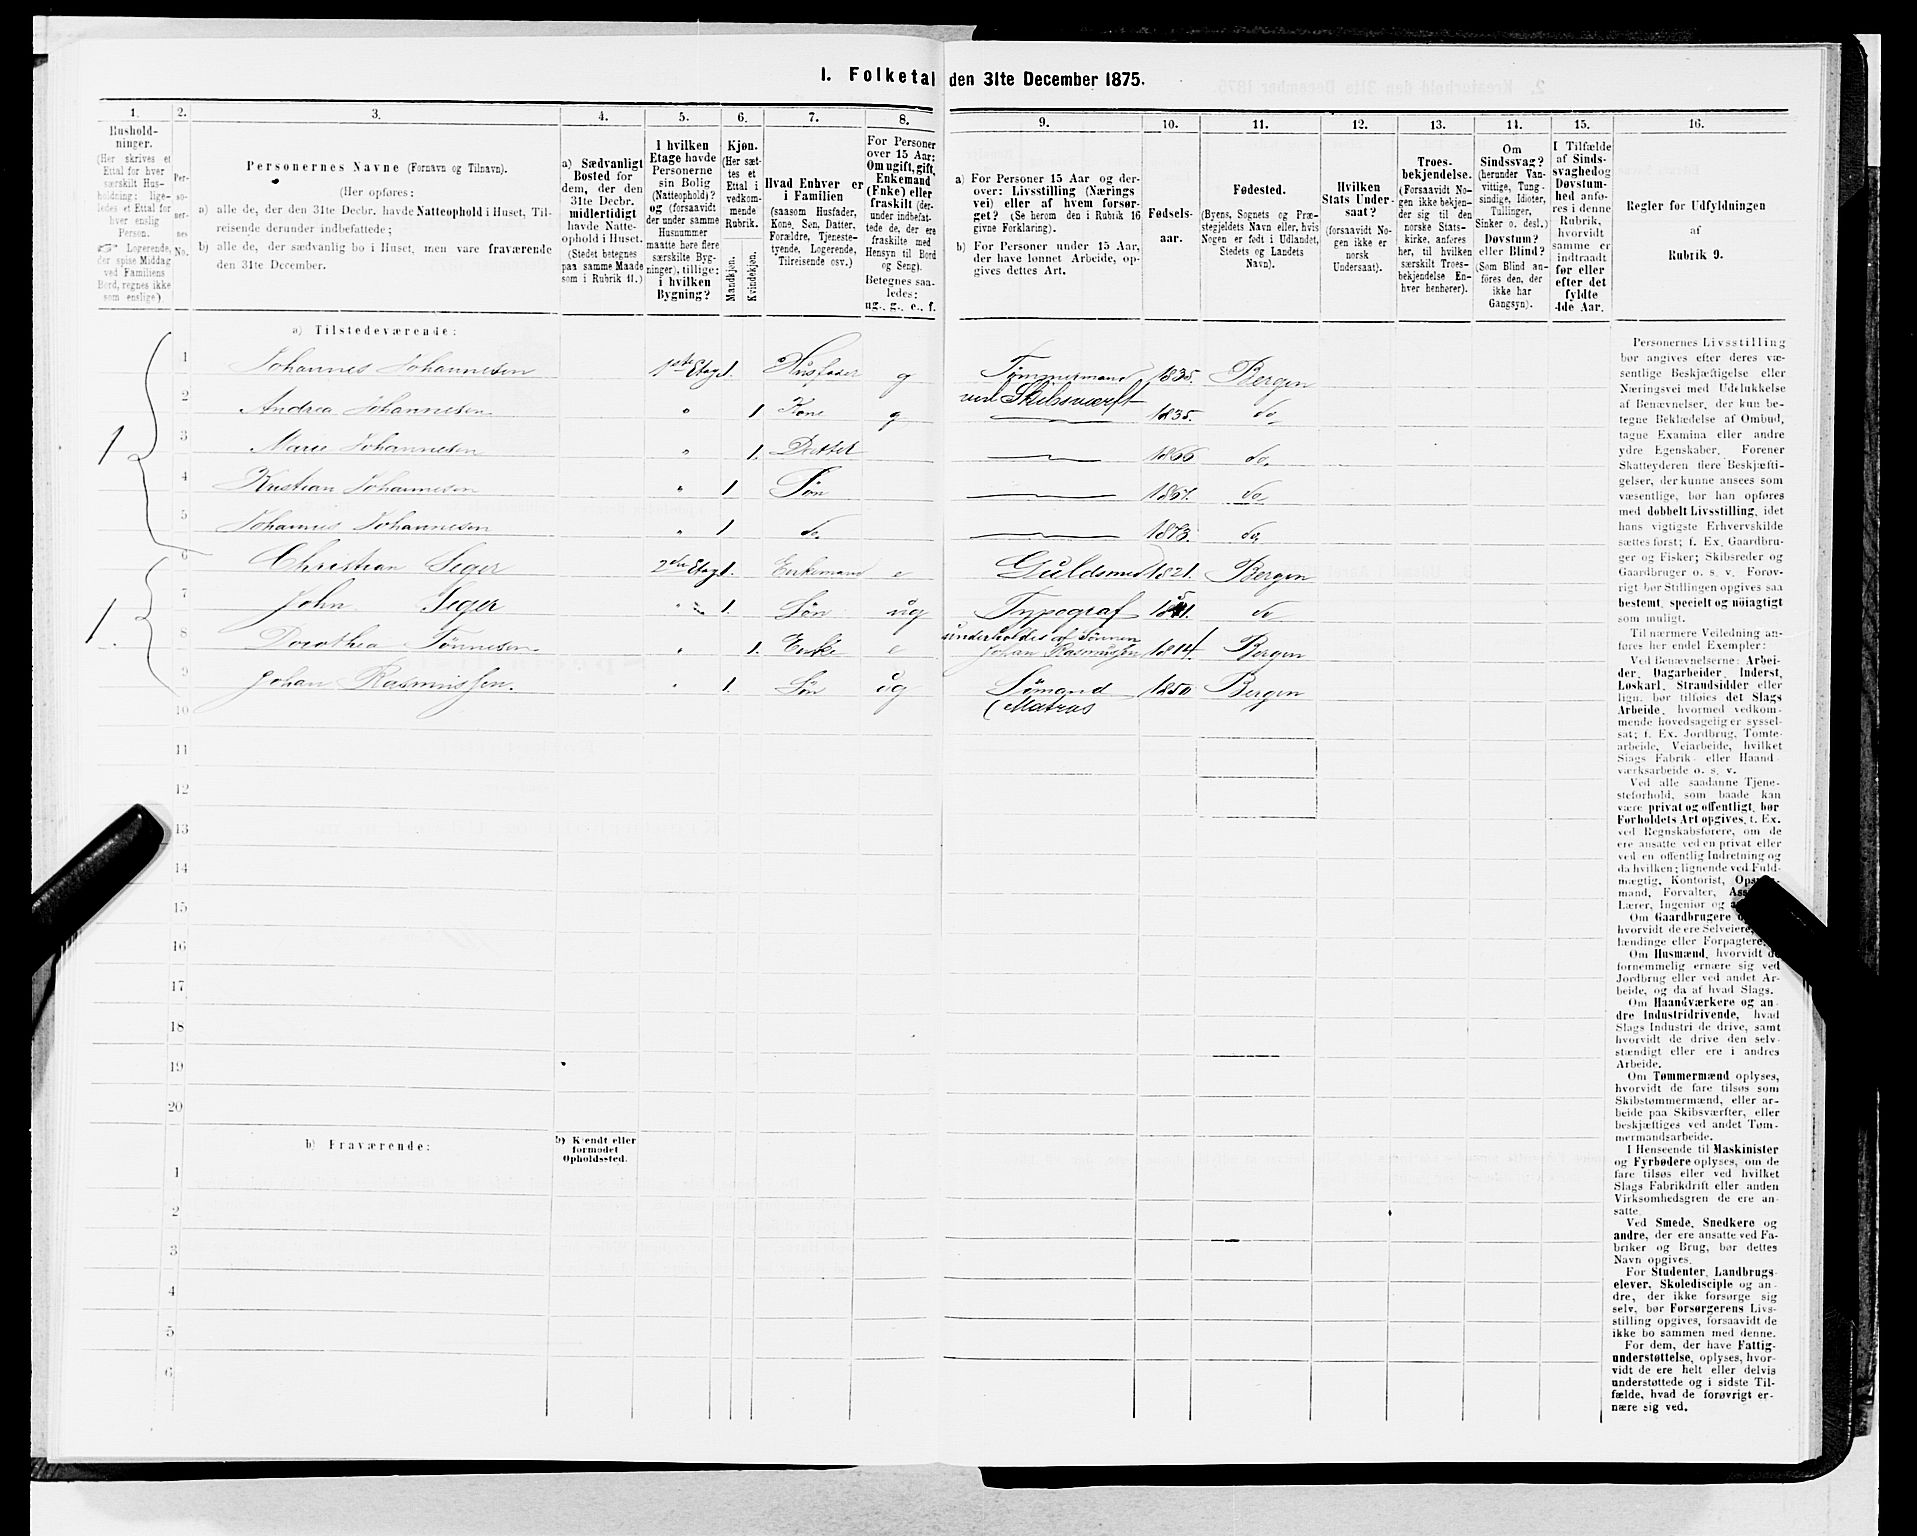 1. Folketal den 31te December 1875.
1. 2. 3. 4. 5. 6. 7. 8. 9. 10. 11. 12. 13. 14. 15. 16.
Hushold-
ninger.
(Her skrives et
Ettal for hver
særskilt Hus-
holdning; lige-
ledes et Ettal for
hver enslig
Person.
Logerende,
der spise Middag
ved Familiens
Bord, regnes ikke
som enslige.)
Per-
so-
ner-
nes
No.
Personernes Navne (Fornavn og Tilnavn).
(Her opføres:
a) alle de, der den 31te Decbr. havde Natteophold i Huset, Til-
reisende derunder indbefattede;
b) alle de, der sædvanlig bo i Huset, men vare fraværende
den 31te December.
a) Sædvanligt
Bosted for
dem, der den
31te Decbr.
midlertidigt
havde Natte-
ophold i Huset.
(Stedet betegnes
paa samme Maade
som i Rubrik 11.)
I hvilken
Etage havde
Personerne
sin Bolig
(Natteophold)?
og (forsaavidt
der under samme
Husnummer
maatte høre flere
særskilte Byg-
ninger), tillige:
i hvilken
Bygning?
Kjøn.
(Her sæt-
tes et
Ettal i
vedkom-
mende
Rubrik.
Mandkjøn.
Kvindekjøn.
Hvad Enhver er
i Familien
(saasom Husfader,
Kone, Søn, Datter,
Forældre, Tjeneste-
tyende, Logerende,
Tilreisende osv.)
For Personer
over 15 Aar:
Om ugift, gift,
Enkemand
(Enke) eller
fraskilt (der-
under indbefat-
tede de, der ere
fraskilte med
Hensyn til Bord
og Seng).
Betegnes saa-
ledes:
ug., g., e., f.
a) For Personer 15 Aar og der-
over: Livsstilling (Nærings
vei) eller af hvem forsør-
get? (Se herom den i Rubrik 16
givne Forklaring).
b) For Personer under 15 Aar,
der have lønnet Arbeide, op-
gives dettes Art.
Fødsels-
aar.
Fødested.
(Byens, Sognets og Præ-
stegjeldets Navn eller, hvis
Nogen er født i Udlandet,
Stedets og Landets
Navn).
Hvilken
Stats Under-
saat?
(forsaavidt No-
gen ikke er
norsk
Undersaat).
Troes-
bekjendelse.
(Forsaavidt No-
gen ikke bekjen-
der sig til den
norske Stats-
kirke, anføres
her, til hvilken
særskilt Troes-
bekjendelse En-
hver henhører).
Om
Sindssvag?
(herunder Van-
vittige, Tung-
sindige, Idioter,
Tullinger,
Sinker o. desl.)
Døvstum?
eller Blind?
(Som Blind an-
føres den, der
ikke har
Gangsyn).
I Tilfælde
af Sinds-
svaghed og
Døvstum-
hed anfø-
res i denne
Rubrik,
hvorvidt
samme er
indtraadt
før eller
efter det
fyldte
4de Aar.
Regler for Udfyldningen
af
Rubrik 9.
a) Tilstedeværende:
1
1 Johannes Johannesen 1ste Etage 1. Husfader g Tømmermand 1835. Bergen
ved Skibsværft
2 Andrea Johannesen " 1 Kone g 1835. do
3 Marie Johannesen " 1. Datter 1866 do
4 Kristian Johannesen " 1 Søn 1867. do
5 Johannes Johannesen " 1 do 1873. do
1.
6 Christian Seger 2den Etage 1. Enkemand e Guldsmed 1821. Bergen
7 John Seger " 1. Søn ug Typograf do
underholdes af Sønnen
8 Dorothea Tønnesen " 1. Enke e Johan Rasmussen 1814. Bergen
9 Johan Rasmussen. " 1. Søn ug Sømand 1850 Bergen
(Matros
10
11
12
13
14
15
16
17
18
19
20
b) Fraværende:
b) Kjendt eller
formodet
Opholdssted.
1
2
3
4
5
6
Personernes Livsstilling
bør angives efter deres væ-
sentlige Beskjæftigelse eller
Næringsvei med Udelukkelse
af Benævnelser, der kun be-
tegne Beklædelse af Ombud,
tagne Examina eller andre
ydre Egenskaber. Forener
Skatteyderen flere Beskjæfti-
gelser, der kunne ansees som
væsentlige, bør han opføres
med dobbelt Livsstilling, idet
hans vigtigste Erhvervskilde
sættes først; f. Ex. Gaardbru-
ger og Fisker; Skibsreder og
Gaardbruger o. s. v. Forøv-
rigt bør Stillingen opgives saa
bestemt, specielt og nøiagtigt
som muligt.
Til nærmere Veiledning an-
føres her endel Exempler:
Ved Benævnelserne: Arbei-
der, Dagarbeider, Inderst,
Løskarl, Strandsidder eller
lign. bør tilføies det Slags
Arbeide, hvormed vedkom-
mende hovedsagelig er syssel-
sat; f. Ex. Jordbrug, Tomte-
arbeide, Veiarbeide, hvilket
Slags Fabrik- eller Haand
værksarbeide o. s. v.
Ved alle saadanne Tjene-
steforhold, som baade kan
være privat og offentligt, bør
Forholdets Art opgives, t. Ex.
ved Regnskabsførere, om de
ere ansatte ved en privat eller
ved en offentlig Indretning og
da hvilken; lignende ved Fuld-
mægtig, Kontorist,
mand, Forvalter,
Lærer, Ingeniør og
Om Gaardbrugere
hvorvidt de ere Selveiere,
lændinge eller Forpagtere.
Om Husmænd, hvorvidt de
fornemmelig ernære sig ved
Jordbrug eller ved andet Ar-
beide, og da af hvad Slags.
Om Haandværkere og an-
dre Industridrivende, hvad
Slags Industri de drive, samt
hvorvidt de drive den selv-
stændigt eller ere i andres
Arbeide.
Om Tømmermænd oplyses,
hvorvidt de fare tilsøs som
Skibstømmermænd, eller ar-
beide paa Skibsværfter, eller
beskjæftiges ved andet Tøm-
mermandsarbeide.
I Henseende til Maskinister
og Fyrbødere oplyses, om de
fare tilsøs eller ved hvilket
Slags Fabrikdrift eller anden
Virksomhedsgren de ere an-
satte.
Ved Smede, Snedkere og
andre, der ere ansatte ved Fa-
briker og Brug, bør dettes
Navn opgives.
For Studenter, Landbrugs-
elever, Skoledisciple og an-
dre, der ikke forsørge sig
selv, bør Forsørgerens Livs-
stilling opgives, forsaavidt de
ikke bo sammen med denne.
For dem, der have Fattig-
understøttelse, oplyses, hvor-
vidt de ere helt eller delvis
understøttede og i sidste Til-
fælde, hvad de forøvrigt er-
nære sig ved.